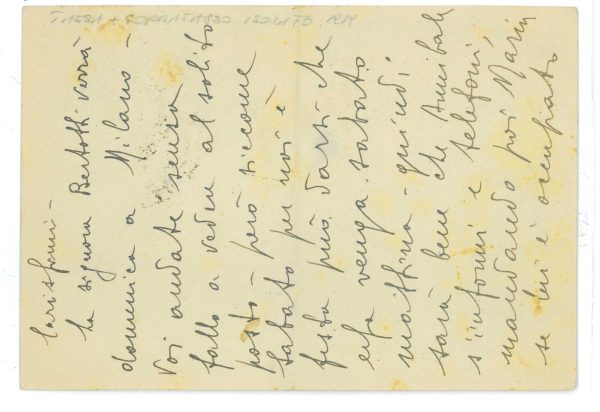 TASSA + SOPRATASSO ISOLATO RR
Carissimi -
La signora Bertotti verrà
domenica a Milano -
Voi andate senza
fallo a vedere al solito
posto - però siccome
Sabato per noi è
festa può darsi che
essa venga sabato
mattina - quindi
sarà bene che Annibale
s'informi e telefoni,
mandando poi Maria
se lui è occupato